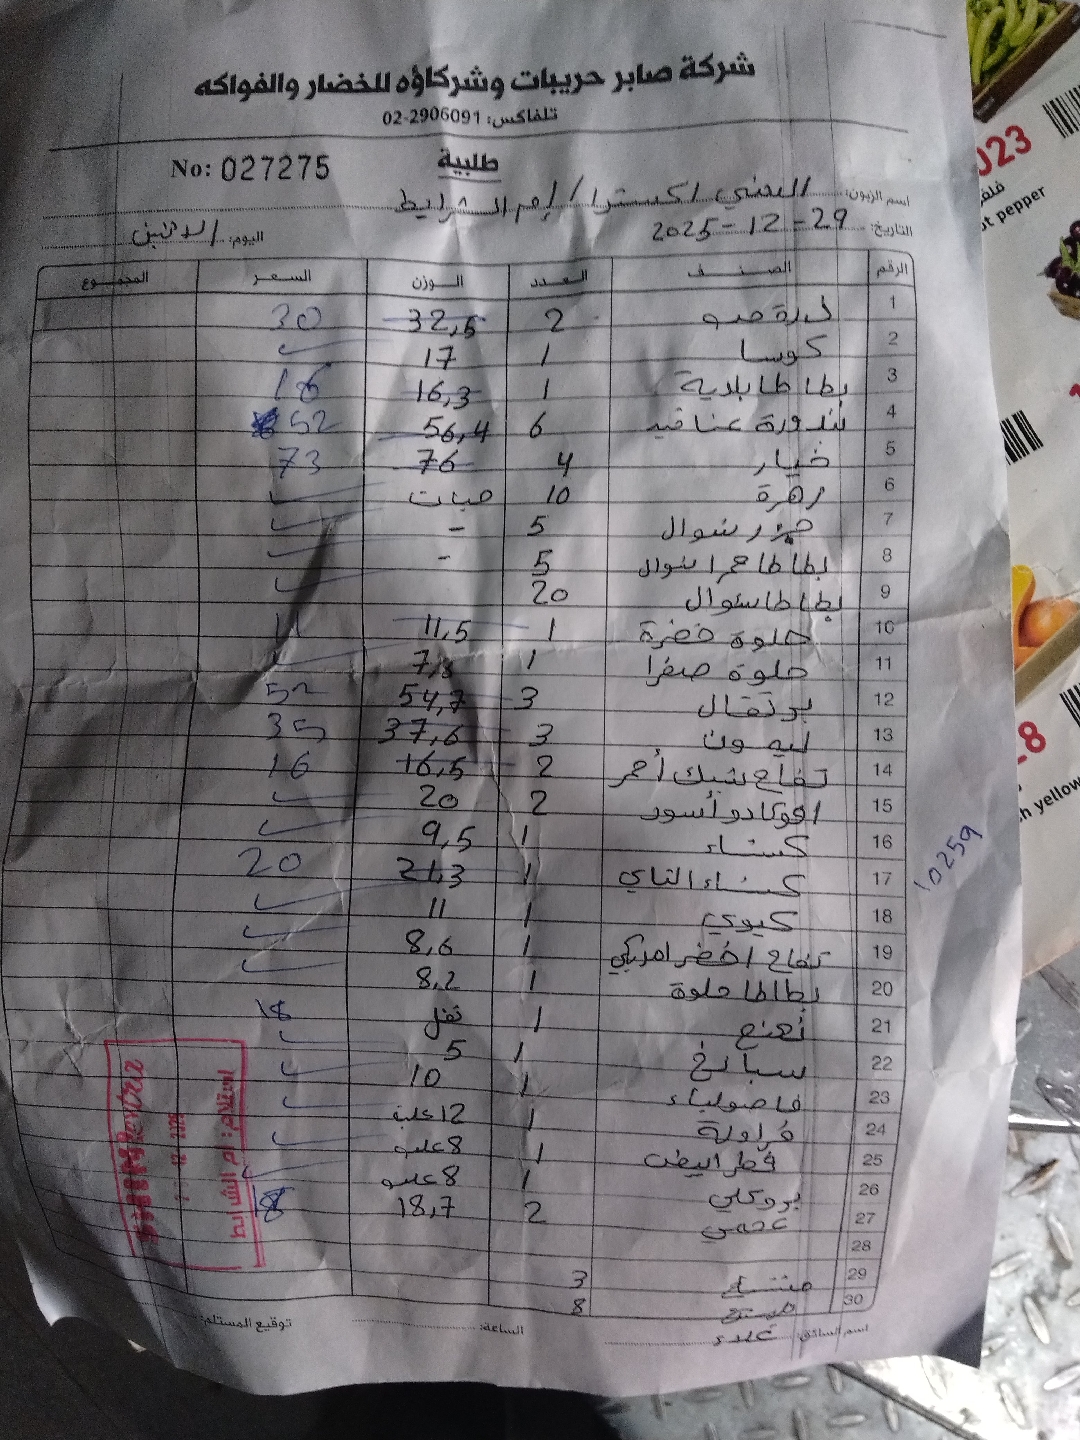 شركة صابر حريبات وشركاؤه للخضار والفواكه
تلفاكس: 02-2906091
No: 027275
طلبية
اسم الزبون: اكسترا / ام الشرايط
التاريخ: 29-12-2025 اليوم: الاثنين
الرقم الصنف العدد الوزن السعر المجموع
1 درة 2 32,5 30
2 كوسا 1 17 ✓
3 بطاطا بلدية 1 16,3 16
4 بندورة عناقيد 6 56,4 52
5 خيار 4 76 73
6 زهرة 10 حبات ✓
7 جزر شوال 5 - ✓
8 بطاطا حمرا شوال 5 - ✓
9 بطاطا شوال 20 ✓
10 حلوة خضرة 1 11,5 11
11 حلوة صفرا 1 ✓
12 برتقال 3 54,7 52
13 ليمون 3 37,6 35
14 تفاح شيك أحمر 2 16,5 16
15 افوكادو أسود 2 20 ✓
16 كستناء 1 9,5 ✓
17 كستناء 1 21,3 20
18 كيوي 1 11 ✓
19 تفاح اخضر امريكي 1 8,6 ✓
20 بطاطا حلوة 1 8,2 ✓
21 نعنع 1 18
22 سبانخ 1 5 ✓
23 فاصولياء 1 10 ✓
24 فراولة 1 12 علبة ✓
25 فطر ابيض 1 8 علبو ✓
26 بروكلي 1 8 علبو ✓
27 عجمي 2 18,7 18
28
29 مشتاح 3
30 8
اسم السائق: علاء الساعة: توقيع المستلم:
استلام: ام الشرايط
10259
023
فلفل
ot pepper
28
h yellow